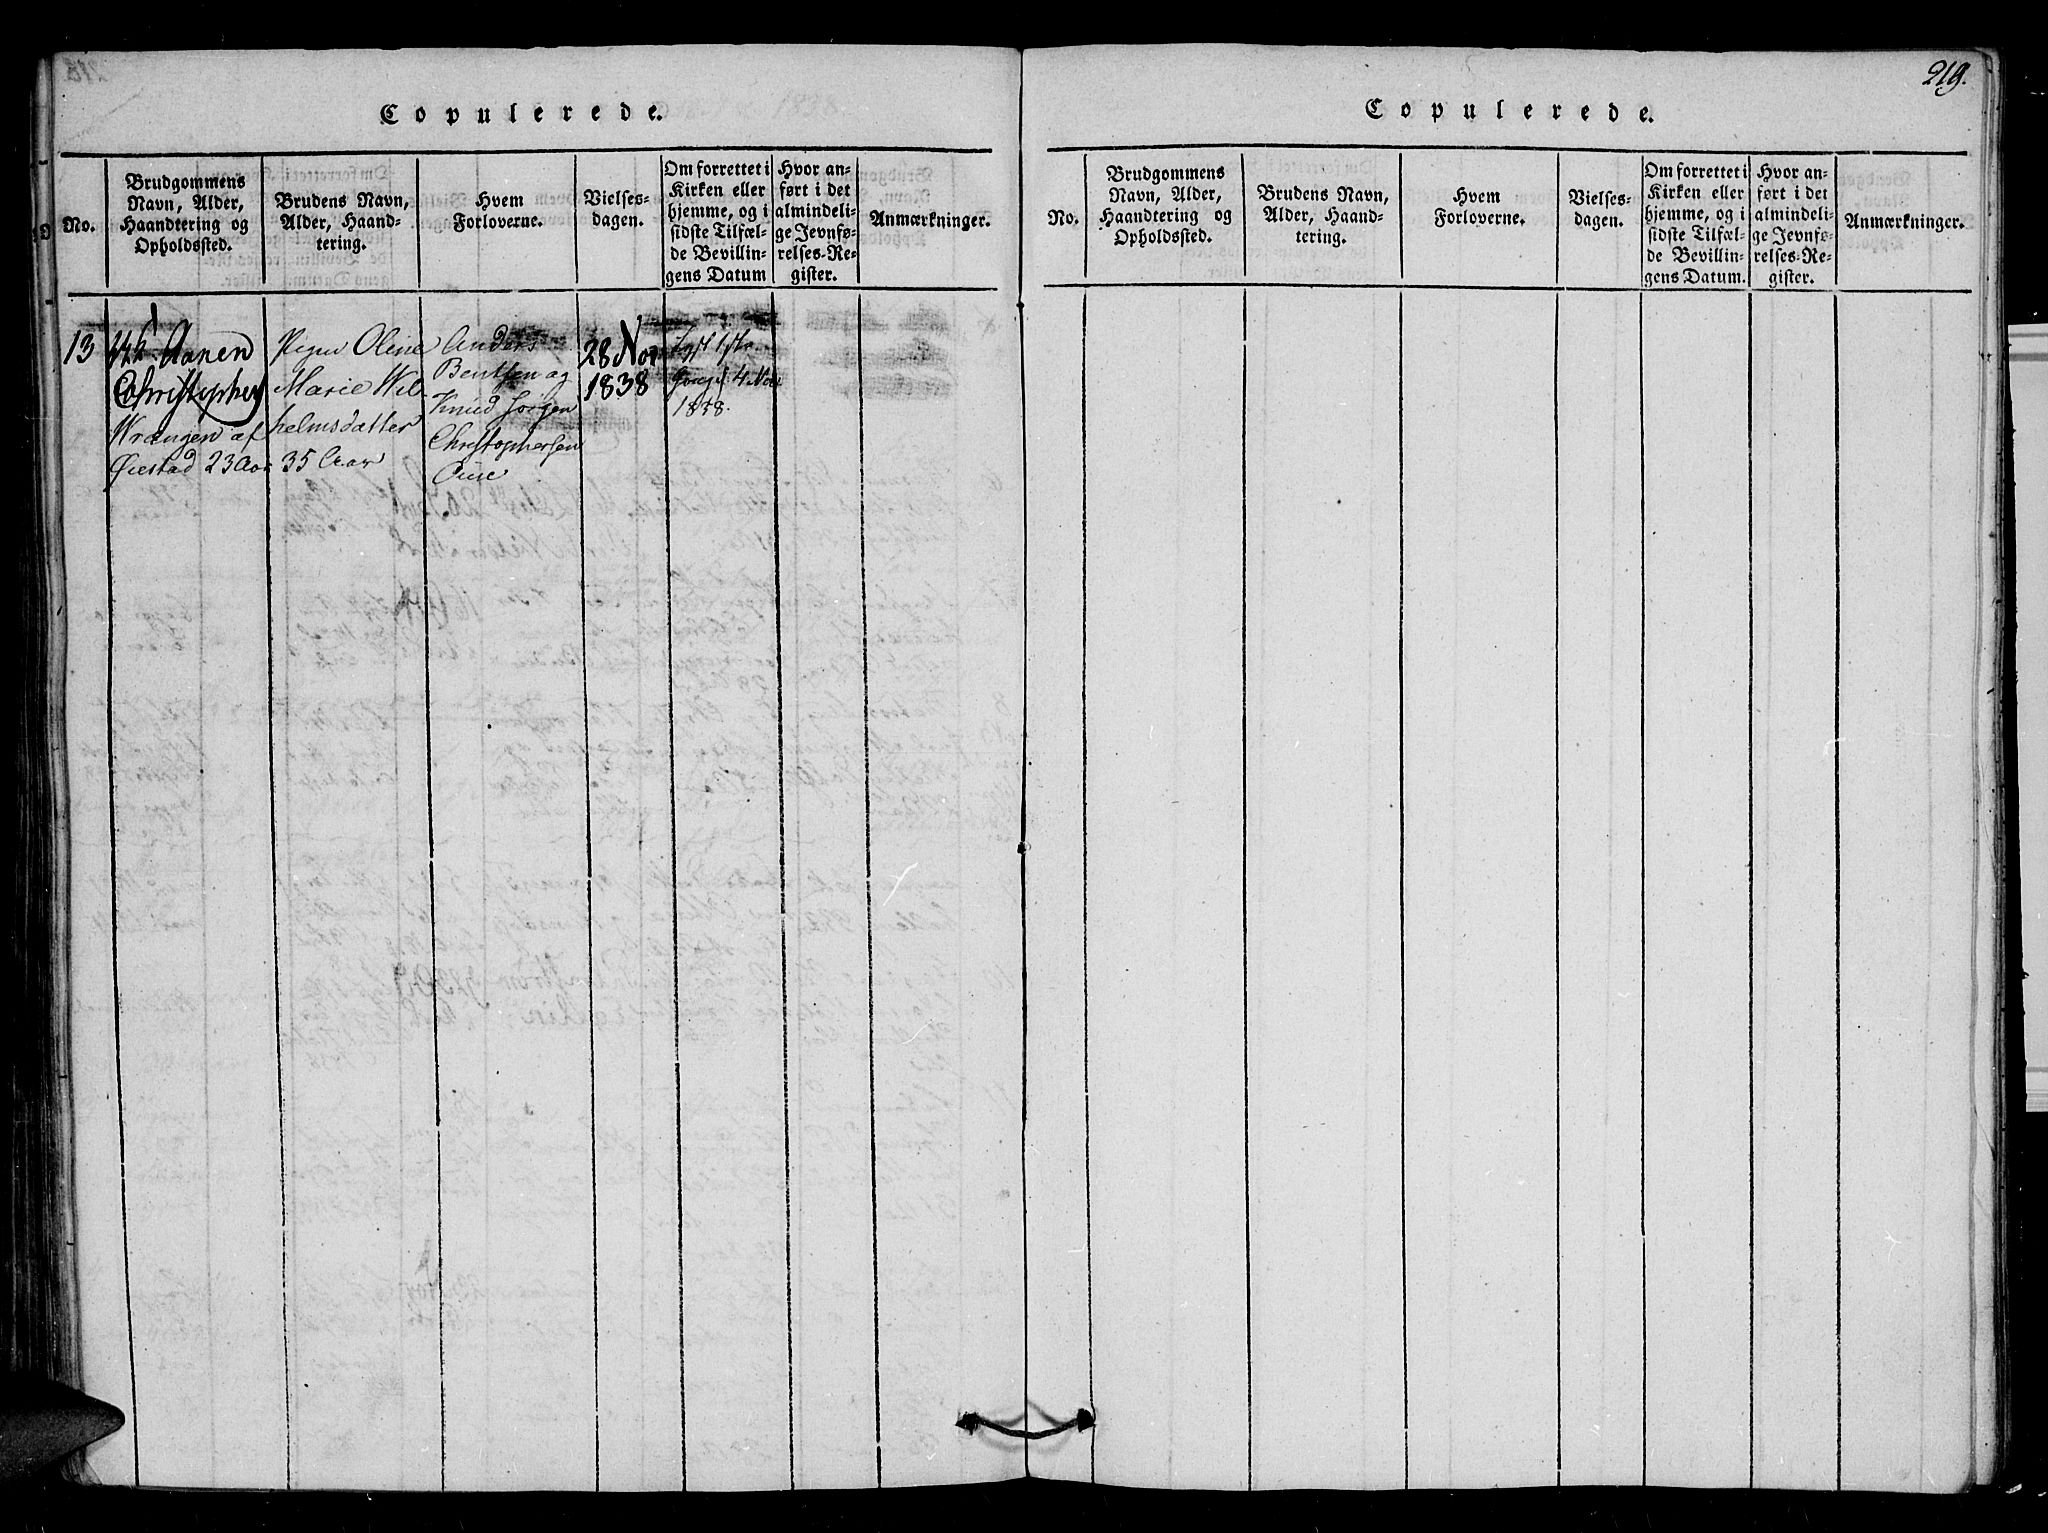 219.
Copulerede.
No.
Brudgommens
Navn, Alder,
Haandtering og
Opholdssted.
Brudens Navn,
Alder, Haand-
tering.
Hvem
Forloverne.
Vielses-
dagen.
Om forrettet i
Kirken eller
hjemme, og i
sidste Tilfæl-
de Bevillin-
gens Datum
Hvor an-
ført i det
almindeli-
ge Jevnfø-
relses-Re-
gister.
Anmærkninger.
13
Aanen
Christophers
Wrangen af
Øiestad 23 Aar
Pigen Oline
Marie Wil-
helmsdatter
35 Aar
Anders
Bentsen og
Knud Jørgen
Christophersen
28 Nov
1838
Lyst 1ste
Gang d. 4 Nov
1838.
Copulerede.
No.
Brudgommens
Navn, Alder,
Haandtering og
Opholdssted.
Brudens Navn,
Alder, Haand-
tering.
Hvem
Forloverne.
Vielses-
dagen.
Om forrettet i
Kirken eller
hjemme, og i
sidste Tilfæl-
de Bevillin-
gens Datum.
Hvor an-
ført i det
almindeli-
ge Jevnfø-
relses-Re-
gister.
Anmærkninger.